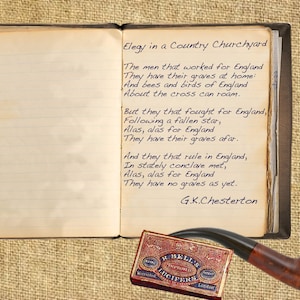 Elegy in a Country Churchyard
The men that worked for England
They have their graves at home:
And bees and birds of England
About the cross can roam.
But they that fought for England,
Following a fallen star,
Alas, alas for England
They have their graves afar.
And they that rule in England,
In stately conclave met,
Alas, alas for England
They have no graves as yet.
G.K.Chesterton
R. BELL & 
LUCIFERS
London